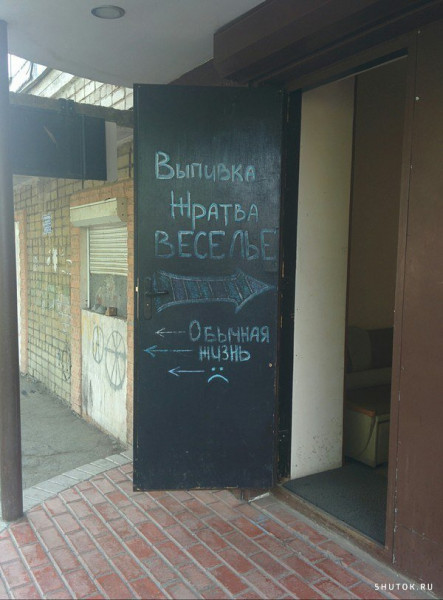 Выпивка
Жратва
ВЕСЕЛЬЕ
Обычная
жизнь
SHUTOK.RU